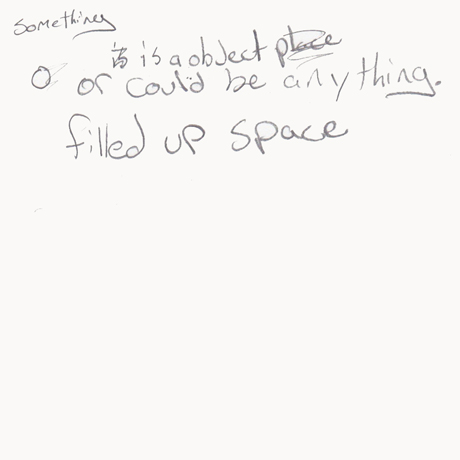 Something
is a object place
or could be anything.
filled up space